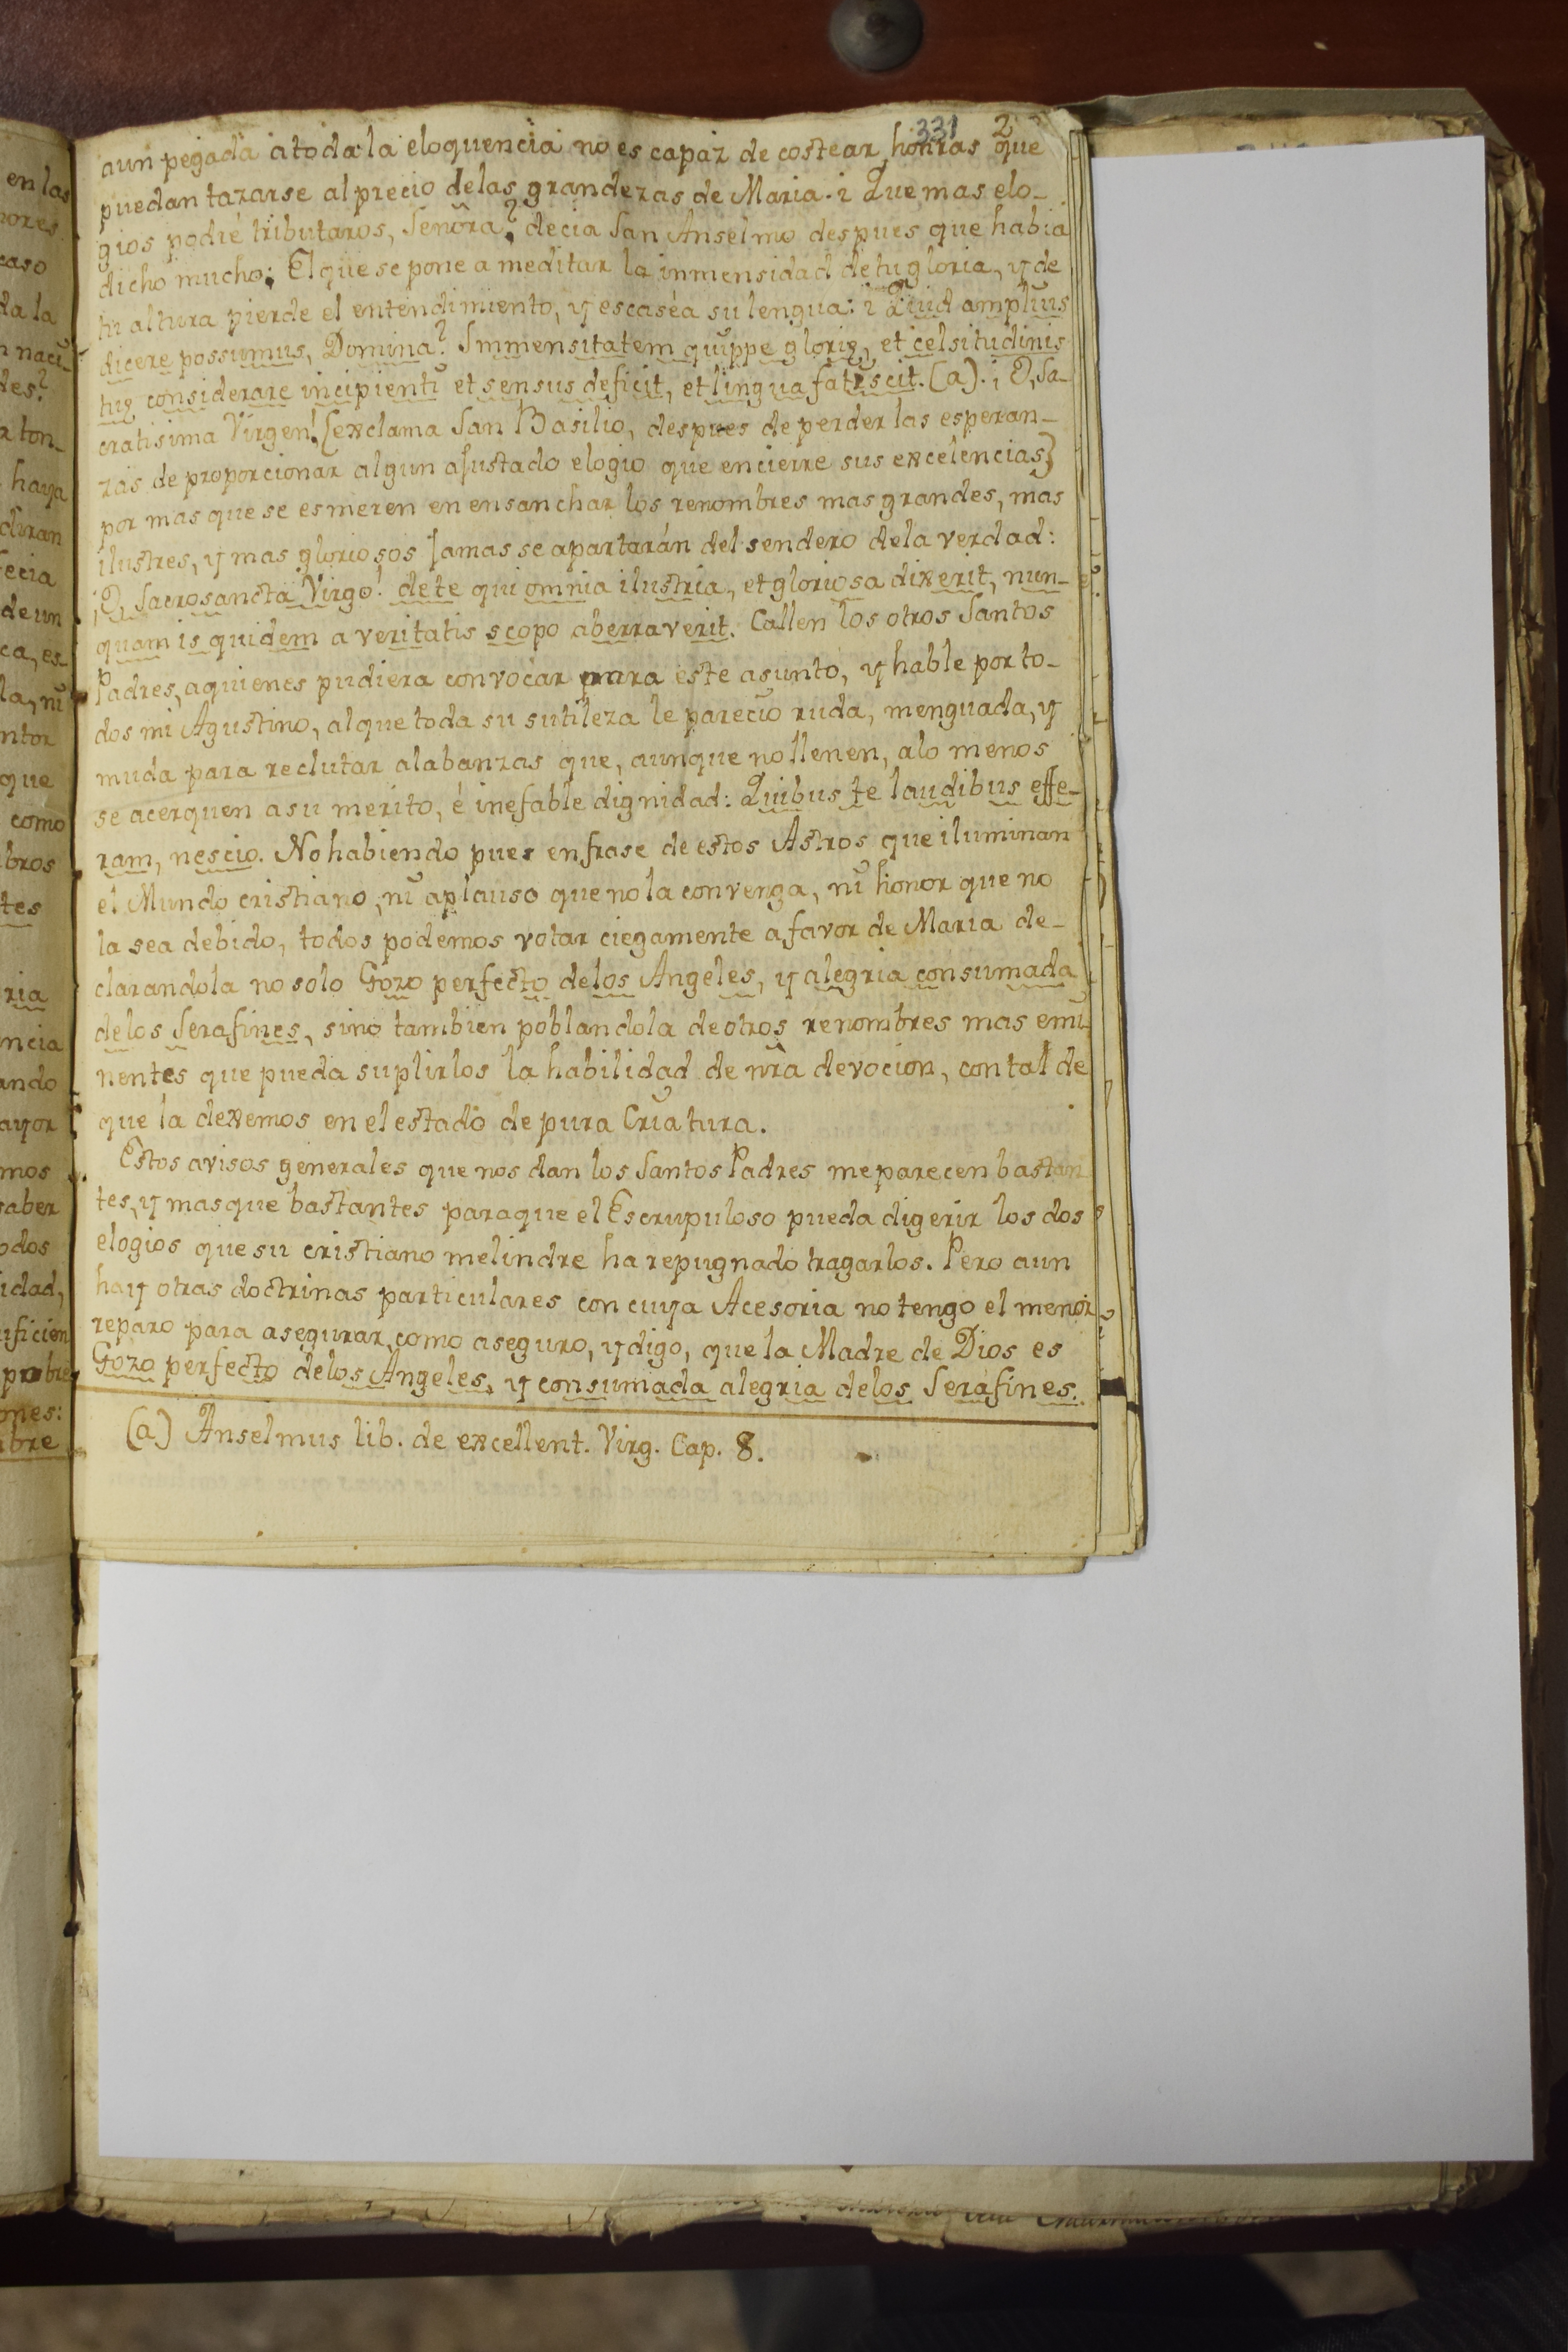 331 2
aun pegada á toda la eloquencia no es capaz de costear honras que
puedan tazarse al precio delas grandezas de Maria. ¿ Que mas elo-
gios podré tributaros, Señora? decia San Anselmo despues que habia
dicho mucho: El que se pone a meditar la inmensidad de tu gloria, y de
tu altura pierde el entendimiento, y escaséa su lengua: ¿ Quid amplius
dicere possumus, Domina? Immensitatem quippe glorię, et celsitudinis
tuę considerare incipienti et sensus deficit, et lingua fatiscit. (a). ¡ O, Sa-
cratisima Virgen! [exclama San Basilio, despues de perder las esperan-
zas de proporcionar algun ajustado elogio que encierre sus excelencias]
por mas que se esmeren en ensanchar los renombres mas grandes, mas
ilustres, y mas gloriosos jamas se apartarán del sendero dela verdad:
¡O, Sacrosancta Virgo! de te qui omnia ilustria, et gloriosa dixerit, nun-
quam is quidem a veritatis scopo aberraverit. Callen los otros Santos
Padres, aquienes pudiera convocar para este asunto, y hable por to-
dos mi Agustino, al que toda su sutileza le pareció ruda, menguada, y
muda para reclutar alabanzas que, aunque no llenen, alo menos
se acerquen asu merito, é inefable dignidad: Quibus te laudibus effe-
ram, nescio. No habiendo pues en frase de estos Astros que iluminan
el Mundo cristiano, ni aplauso que no la convenga, ni honor que no
la sea debido, todos podemos votar ciegamente a favor de Maria de-
clarandola no solo Gozo perfecto delos Angeles, y alegria consumada
delos Serafines, sino tambien poblandola de otros renombres mas emi-
nentes que pueda suplirlos la habilidad de nr̃a devocion, con tal de
que la dexemos en el estado de pura Criatura.
Estos avisos generales que nos dan los Santos Padres me parecen bastan
tes, y mas que bastantes paraque el Escrupuloso pueda digerir los dos
elogios que su cristiano melindre ha repugnado tragarlos. Pero aun
hay otras doctrinas particulares con cuya Acesoria no tengo el menor
reparo para asegurar, como aseguro, y digo, que la Madre de Dios es
Gozo perfecto delos Angeles, y consumada alegria delos Serafines.
(a) Anselmus lib. de excellent. Virg. Cap. 8.